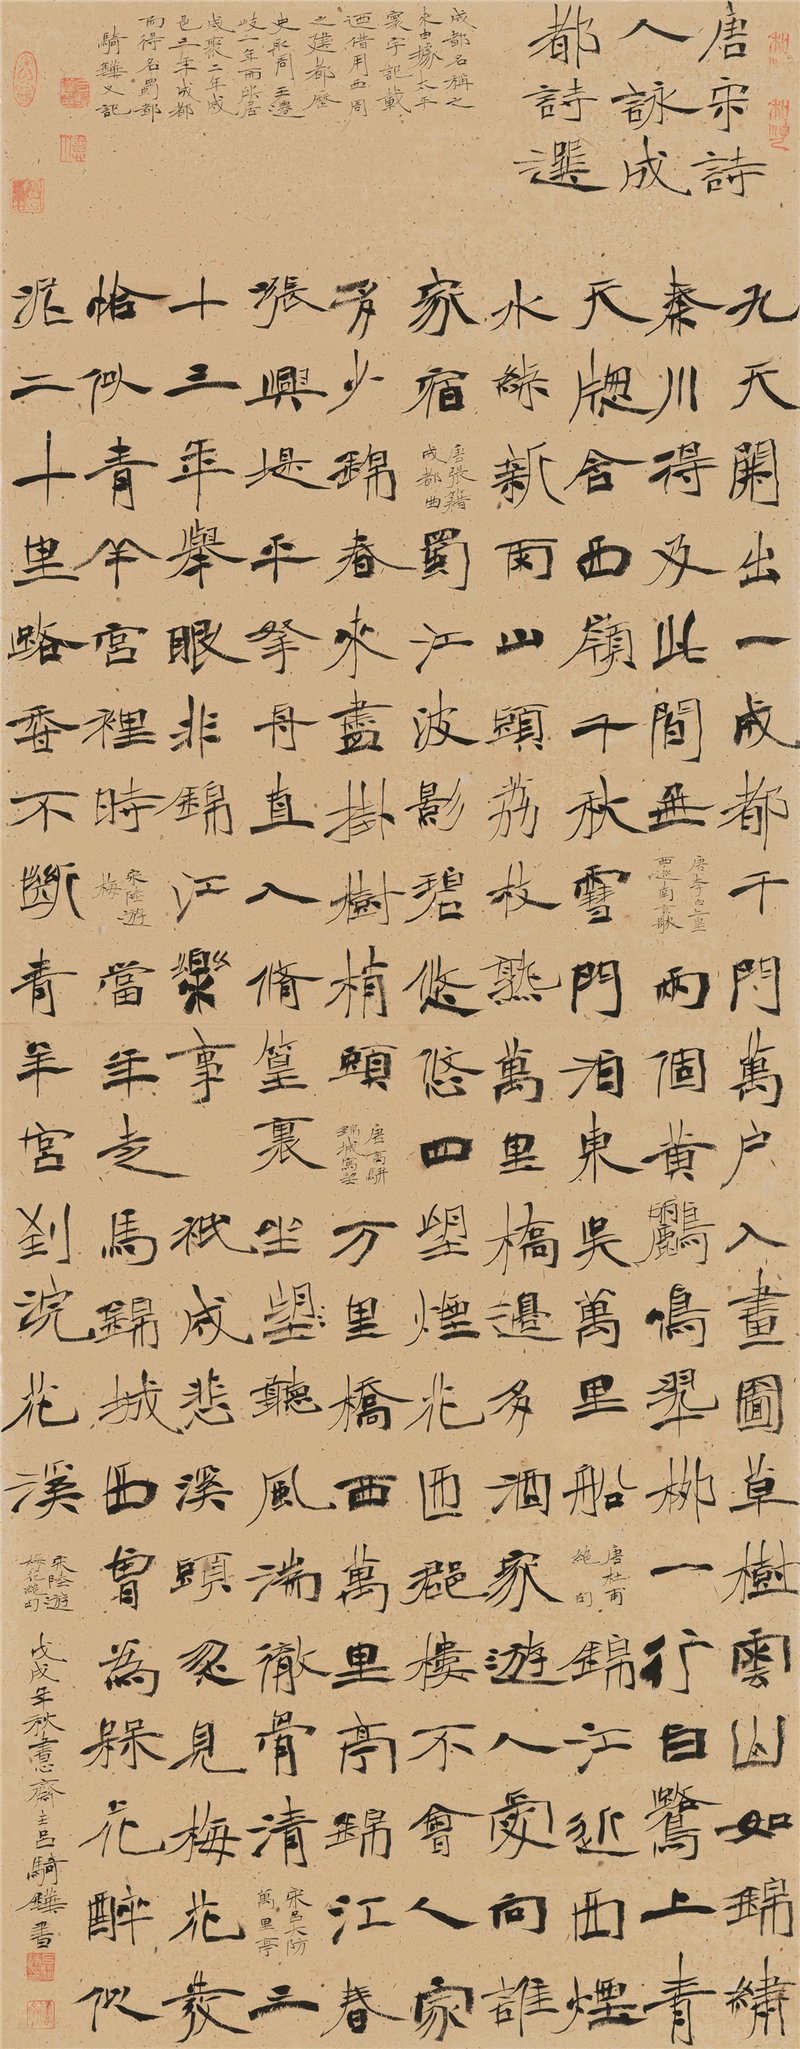 唐宋詩
人詠成
都詩選
九天開出一成都千門萬户入畫圖草樹雲山如錦繡
秦川得及此間無 唐李白上皇西巡南京歌 兩個黃鸝鳴翠柳一行白鷺上青
天牕含西嶺千秋雪門泊東吳萬里船 唐杜甫絕句 錦江近西煙
水綠新雨山頭荔枝熟萬里橋邊多酒家游人愛向誰
家宿 唐張籍成都曲 蜀江波影碧悠悠四望煙花匝郡樓不會人家
多少錦春來盡掛樹梢頭 唐高駢錦城寫望 万里橋西萬里亭錦江春
漲興堤平拏舟直入脩篁裏坐望聽風湍徹骨清 宋呂大防萬里亭 三
十三年舉眼非錦江樂事祇成悲溪頭忽見梅花發
恰似青羊宮裡時 宋陸游梅 當年走馬錦城西曾為槑花醉似
泥二十里路香不斷青羊宮到浣花溪 宋陸游梅花絕句 戊戌年秋 齋主呂騎鐸書
成都名稱之
来由據太平
寰宇記載
迺借用西周
之建都歷
史取周王遷
岐一年而所居
成聚二年成
邑三年成都
而得名蜀都
騎鐸又記